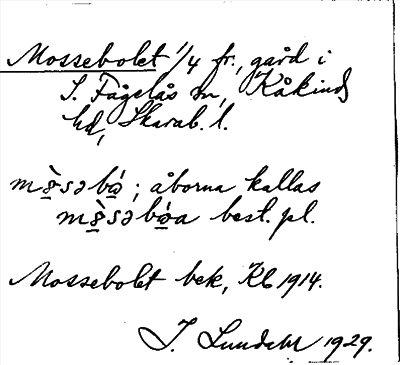 Mossebolet 1/4 fr., gård i
S. Fågelås sn, Kåkinds
hd, Skarab. l.
åborna kallas
best. pl.
Mossebolet bek, Kb 1914.
I. Lundahl 1929.